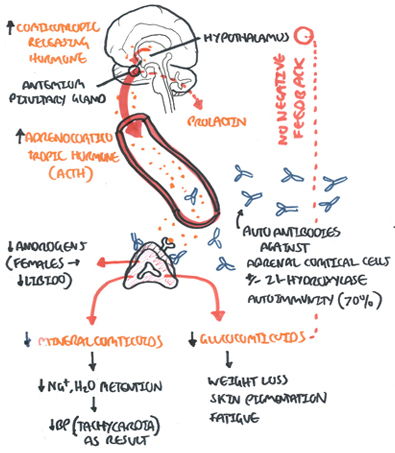 ↑ CORTICOTROPIC
RELEASING
HORMONE
HYPOTHALAMUS
ANTERIOR
PITUITARY GLAND
PROLACTIN
NO NEGATIVE
FEEDBACK
↑ ADRENOCORTICO
TROPIC HORMONE
(ACTH)
↑ AUTOANTIBODIES
AGAINST
ADRENAL CORTICAL CELLS
+/- 21-HYDROXYLASE
AUTOIMMUNITY (70%)
↓ ANDROGENS
(FEMALES →
↓ LIBIDO)
↓ MINERALCORTICOIDS
↓ GLUCOCORTICOIDS
↓ Na+, H2O RETENTION
↓ BP (TACHYCARDIA
AS RESULT)
WEIGHT LOSS
SKIN PIGMENTATION
FATIGUE